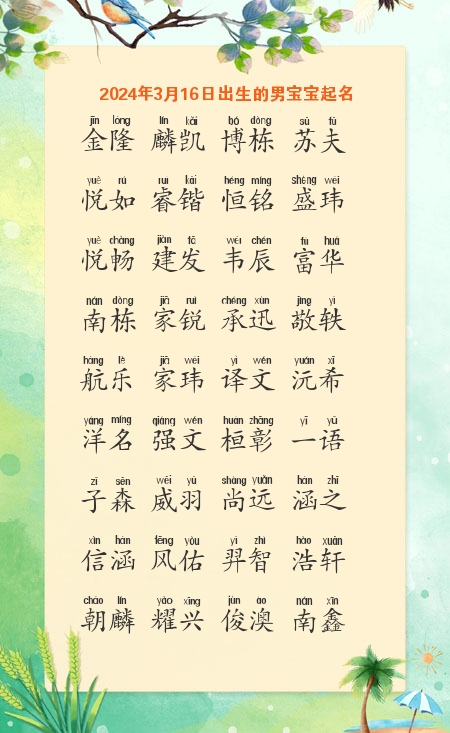 2024年3月16日出生的男宝宝起名
jīn lóng lín kǎi bó dòng sū fū
金隆 麟凯 博栋 苏夫
yuè rú ruì kǎi héng míng shèng wěi
悦如 睿锴 恒铭 盛玮
yuè chàng jiàn fā wéi chén fù huá
悦畅 建发 韦辰 富华
nán dòng jiā ruì chéng xùn jìng yì
南栋 家锐 承迅 敬轶
háng lè jiā wěi yì wén yuán xī
航乐 家玮 译文 沅希
yáng míng qiáng wén huán zhāng yī yǔ
洋名 强文 桓彰 一语
zǐ sēn wēi yǔ shàng yuǎn hán zhī
子森 威羽 尚远 涵之
xìn hán fēng yòu yì zhì hào xuān
信涵 风佑 羿智 浩轩
cháo lín yào xīng jùn ào nán xīn
朝麟 耀兴 俊澳 南鑫